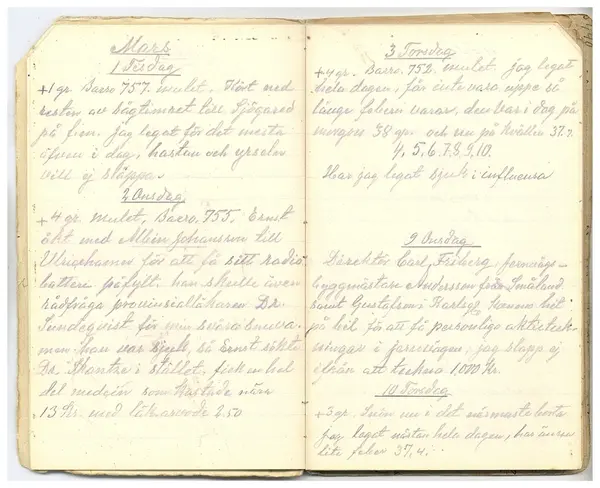 Mars
1 Tisdag
+1 gr. Baro. 757. mulet. Kört ned
resten av sågtimret till Sjögared
på f.m. jag legat för det mesta
äfven i dag, hostan och yrseln
vill ej släppa.
2 Onsdag
+4 gr. mulet, Baro. 755. Ernst
åkt med Albin Johansson till
Ulricehamn för att få sitt radio
batteri påfyllt. han skulle även
rådfråga provinsialläkaren Dr.
Sundequist för min svåra snuva.
men han var sjuk, så Ernst sökte
Dr. i stället. fick en hel
del medecin som kostade nära
13 Kr. med läkarvode 2.50
3 Torsdag
+4 gr. Baro. 752. mulet jag legat
hela dagen, får inte vara uppe så
länge febern varar, den var i dag på
morgon 38 gr. och nu på kvällen 37.7.
4, 5, 6, 7, 8, 9, 10.
Har jag legat sjuk i influensa
9 Onsdag
Direktör Carl Friberg, järnvägs-
byggmästare Andersson från Småland
samt Gustafsson i Hamna höll
på här få att få personliga aktieteck-
ningar i jag slapp ej
ifrån att teckna 1000 Kr.
10 Torsdag
+3 gr. Snön nu i det närmaste borta
jag legat nästan hela dagen, har ännu
lite feber 37,4.